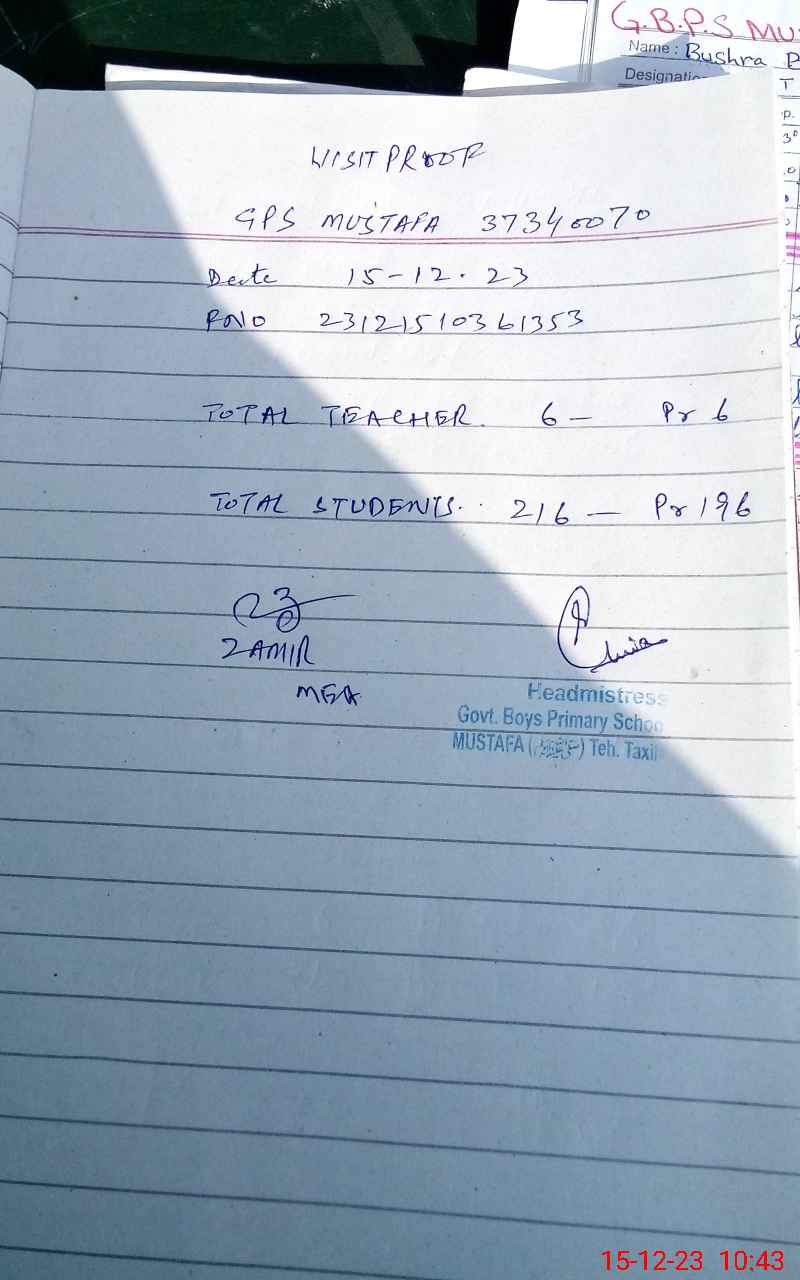 G.B.P.S MU
Name : Bushra P
Designatio
VISIT PROOF
GPS MUSTAFA 37340070
Date 15-12.23
RNO 23121510361353
TOTAL TEACHER. 6 - Pr 6
TOTAL STUDENTS.. 216 - Pr 196
ZAMIR
MEA
Headmistress
Govt. Boys Primary Schoo
MUSTAFA ( ) Teh. Taxil
15-12-23 10:43